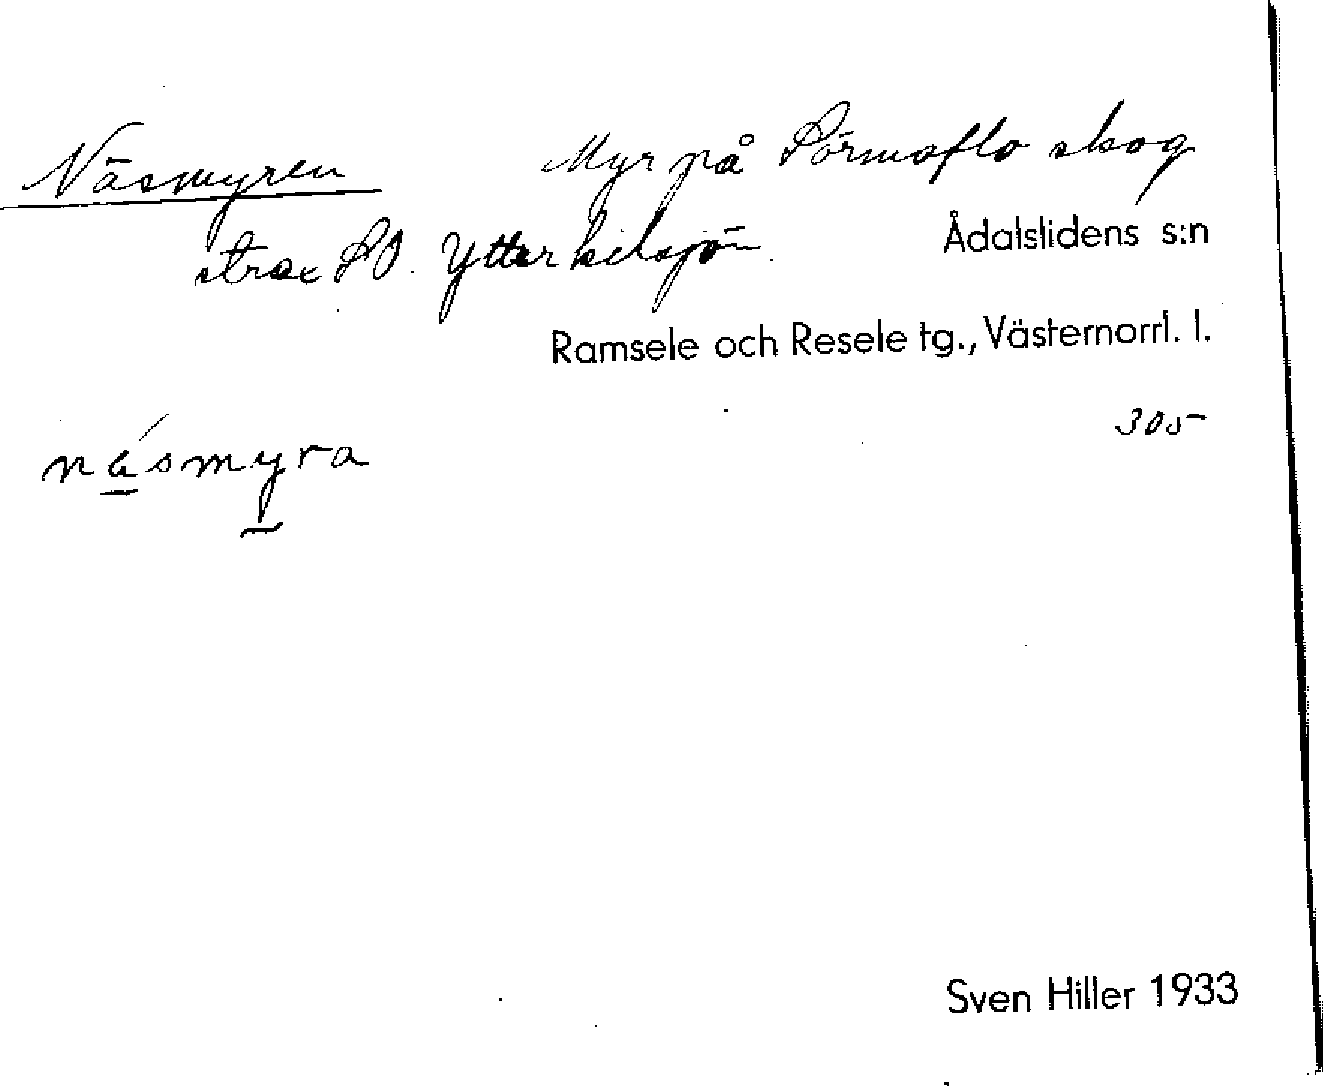 Näsmyren Myr på Sörmoflo skog
strax SO. Ytterkilsjön. Ådalslidens s:n
Ramsele och Resele tg., Västernorrl. l.
305
näsmyra
Sven Hiller 1933